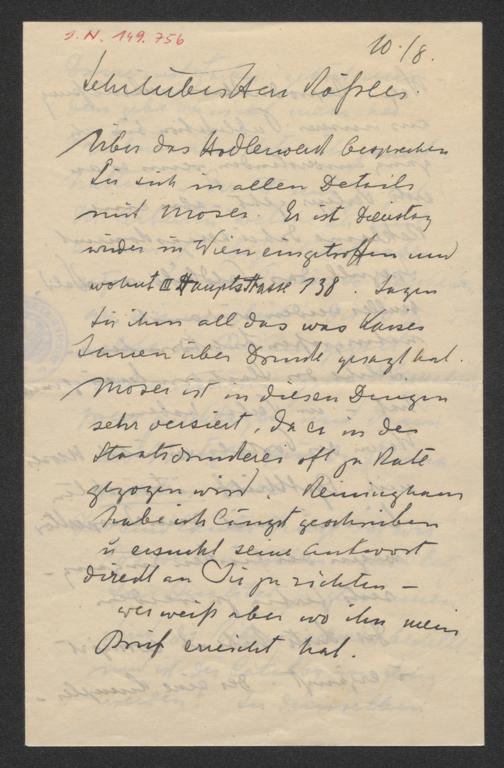 J. N. 149.756
10./8.
Sehr lieber Herr Rößler.
Über das Hodlerwerk besprechen
Sie sich in allen Details
mit Moser. Er ist Dienstag
wieder in Wien eingetroffen und
wohnt III Hauptstrasse 138. Sagen
Sie ihm all das was Kaiser
Ihnen über Druck gesagt hat.
Moser ist in diesen Dingen
sehr versiert, da er in der
Staatsdruckerei oft zu Rate
gezogen wird. Reininghaus
habe ich längst geschrieben
u ersucht seine Antwort
direkt an Sie zu richten –
wer weiß aber wo ihn mein
Brief erreicht hat.